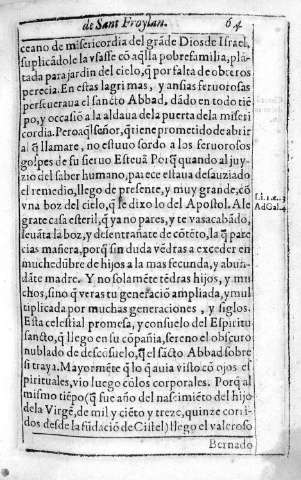 de Sant Froylan. 64
ceano de misericordia del grãde Dios de Israel,
suplicãdole la vsasse cõ aq̃lla pobre familia, plã-
tada para jardin del cielo, q̃ por falta de obreros
perecia. En estas lagrimas, y ansias feruorosas
perseueraua el sancto Abbad, dãdo en todo tiẽ
po, y occasiõ a la aldaua de la puerta de la miseri
cordia. Pero aq̃l señor, q̃ tiene prometido de abrir
al q̃ llamare, no estuuo sordo a los feruorosos
golpes de su sieruo Esteuã. Porq̃ quando al juy-
zio del saber humano, parece estaua desauziado
el remedio, llego de presente, y muy grande, cõ
vna boz del cielo, q̃ le dixo lo del Apostol. Ale
grate casa esteril, q̃ ya no pares, y te vas acabãdo,
leuãta la boz, y desentrañate de cõtẽto, la q̃ pare-
cias mañera. porq̃ sin duda vẽdras a exceder en
muchedũbre de hijos a la mas fecunda, y abun-
dãte madre. Y no solamẽte tẽdras hijos, y mu
chos, sino q̃ veras tu generaciõ ampliada, y mul
tiplicada por muchas generaciones, y siglos.
Esta celestial promesa, y consuelo del Espiritu
sancto, q̃ llego en su cõpañia, sereno el obscuro
nublado de descõsuelo, q̃ el sãcto Abbad sobre
si traya. Mayormẽte q̃ lo q̃ auia visto cõ ojos es
pirituales, vio luego cõ los corporales. Porq̃ al
mismo tiẽpo (q̃ fue año del nascimiẽto del hijo
de la Virgẽ, de mil y ciẽto y treze, quinze corri-
dos desde la fũdaciõ de Cistel) llego el valeroso
Bernado
AdGal.4